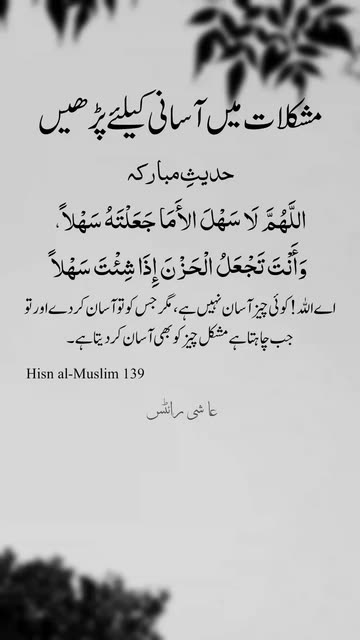 مشکلات میں آسانی کیلئے پڑھیں
حدیثِ مبارکہ
اللَّهُمَّ لَا سَهْلَ الأَمَا جَعَلْتَهُ سَهْلاً،
وَأَنْتَ تَجْعَلُ الْحَزْنَ إِذَا شِئْتَ سَهْلاً
اے اللہ! کوئی چیز آسان نہیں ہے، مگر جس کو تو آسان کر دے اور تو
جب چاہتا ہے مشکل چیز کو بھی آسان کر دیتا ہے۔
Hisn al-Muslim 139
عاشی رائٹس